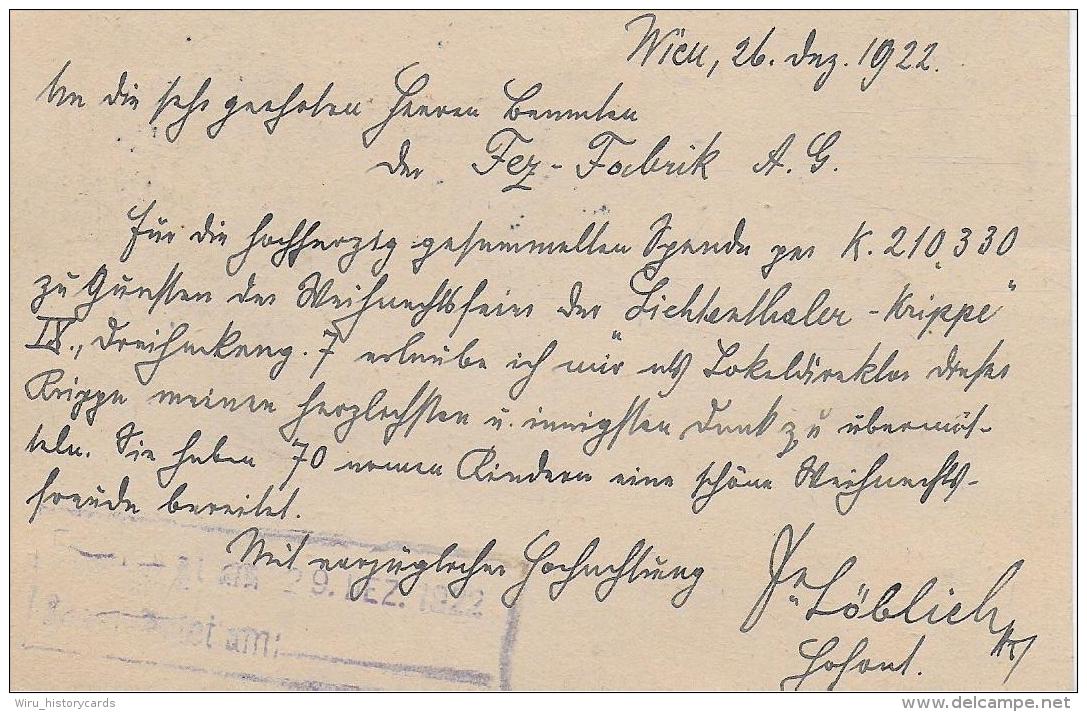 Wien, 26. Dez. 1922.
An die sehr geehrten Herren Beamten
der Fez-Fabrik A. G.
Für die hochherzig gesammelten Spende per K. 210.330
zu Gunsten der Weihnachtsfeier der „Lichtenthaler-Krippe“
IX., Dreihackeng. 7 erlaube ich mir als Lokaldirektor dieser
Krippe meinen herzlichsten u. innigsten Dank zu übermit-
teln. Sie haben 70 armen Kindern eine schöne Weihnachts-
freude bereitet.
Mit vorzüglicher Hochachtung
Löblich
29. DEZ. 1922
am:
Wiru_historycards
delcampe.net